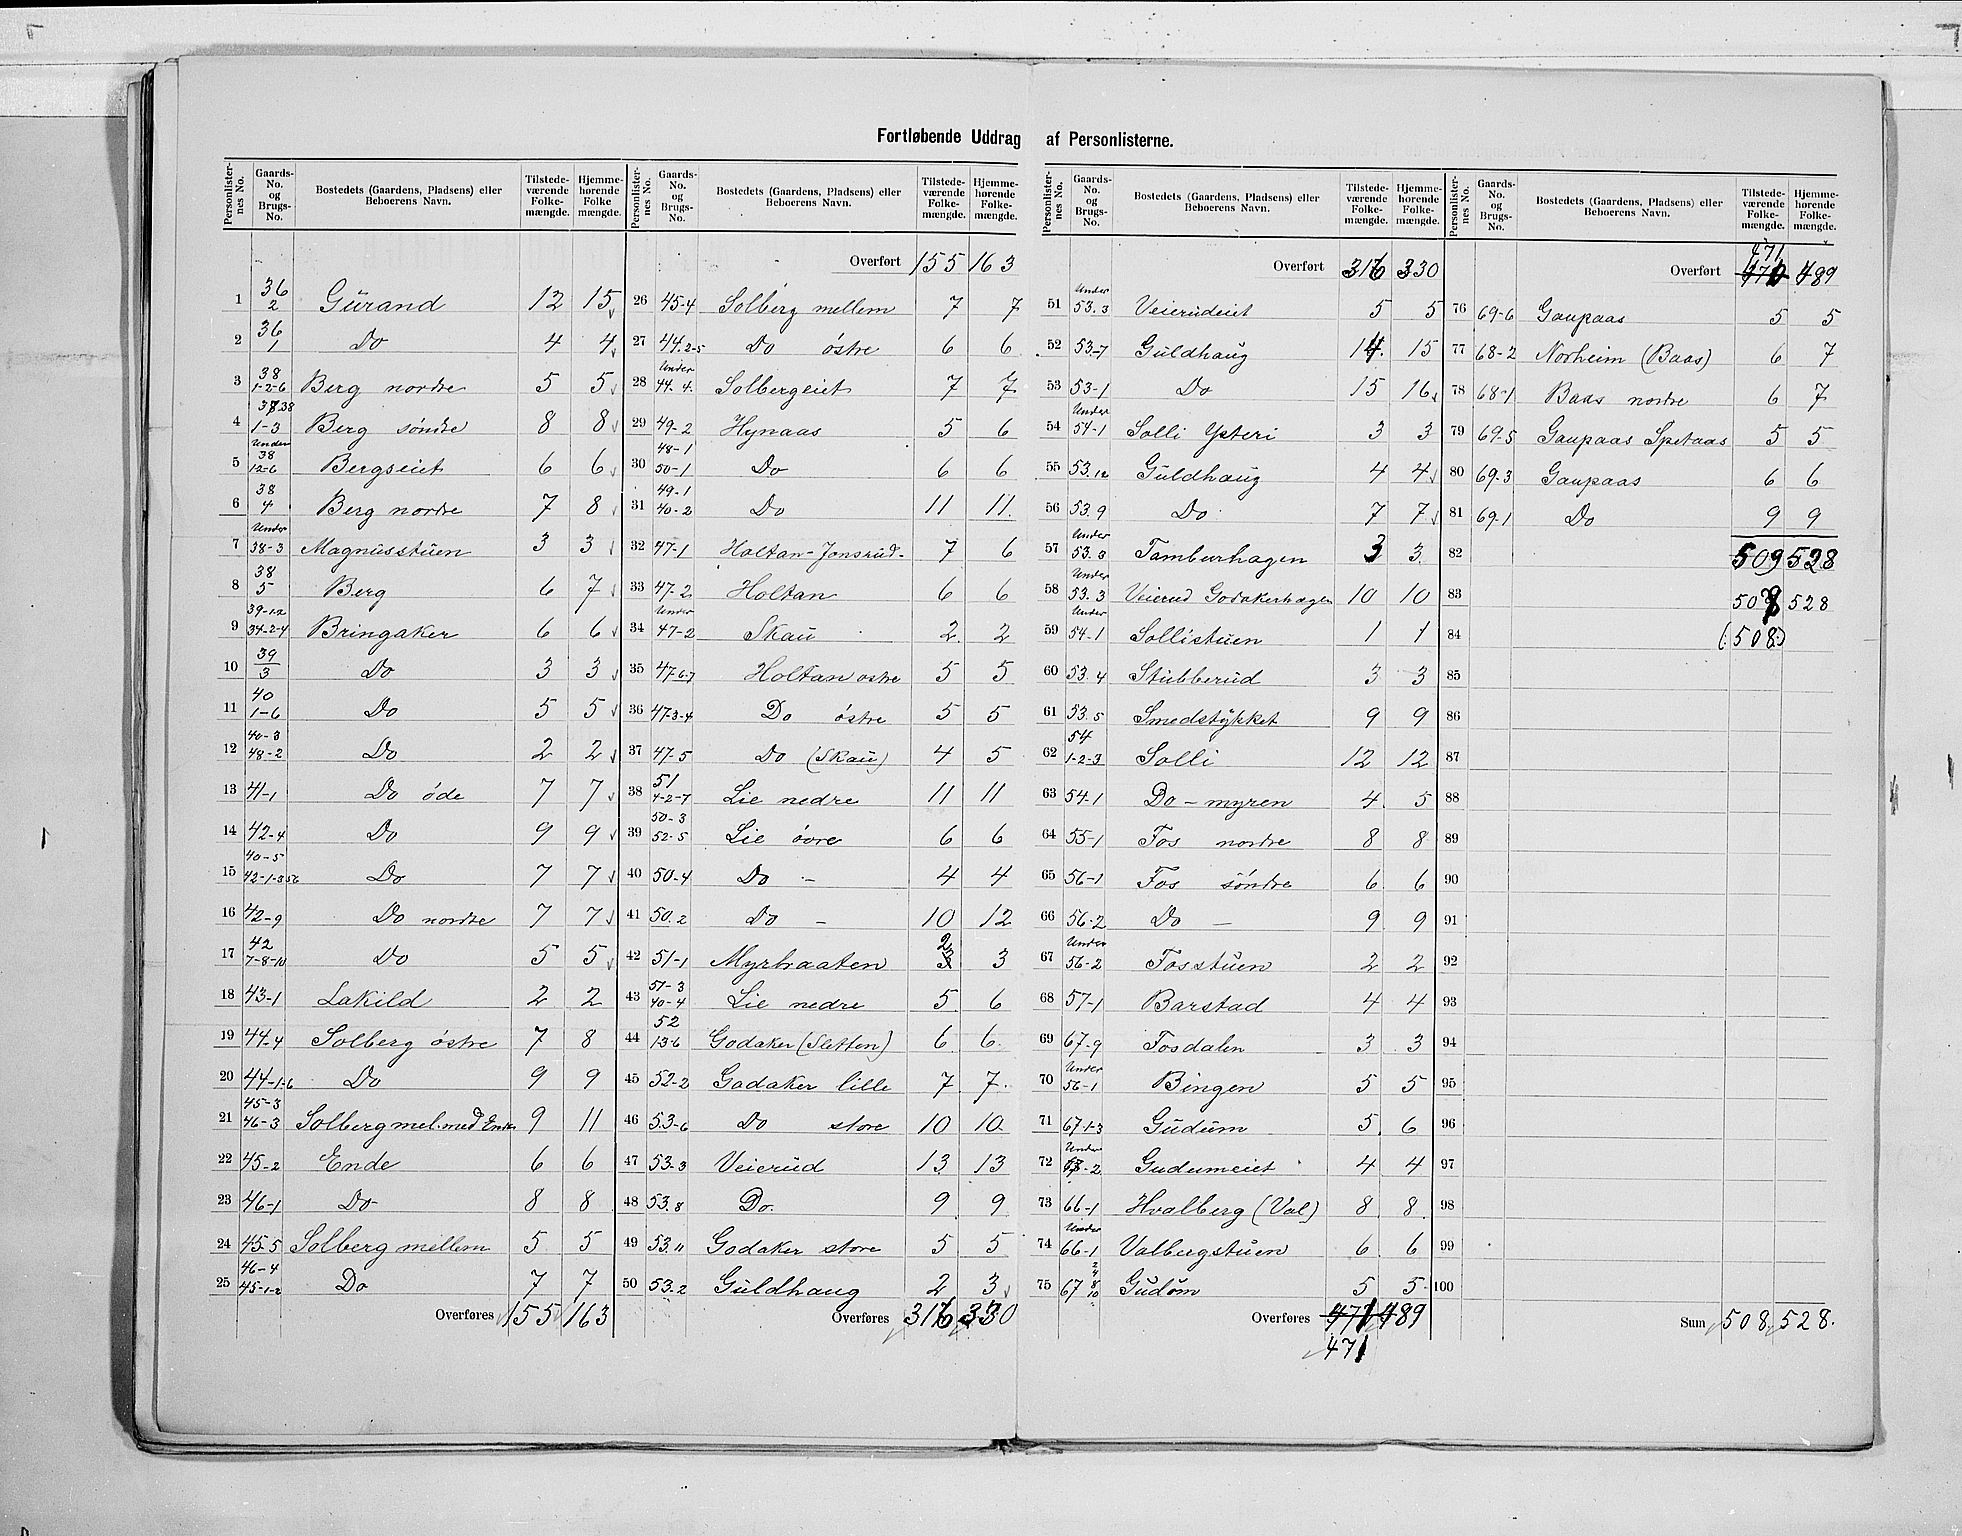 Fortløbende Uddrag af Personlisterne.
Personlisternes No. | Gaards-No. og Brugs-No. | Bostedets (Gaardens, Pladsens) eller Beboerens Navn. | Tilstedeværende Folkemængde. | Hjemmehørende Folkemængde.
1 36 2 Gurand 12 15
2 36 1 Do 4 4
3 38 1-2-6 Berg nordre 5 5
4 37.38 1-3 Berg søndre 8 8
5 Under 38 12-6 Bergseiet 6 6
6 38 4 Berg nordre 7 8
7 Under 38-3 Magnusstuen 3 3
8 38 5 Berg 6 7
9 39-1-2 34-2-4 Bringaker 6 6
10 39 3 Do 3 3
11 40 1-6 Do 5 5
12 40-3 48-2 Do 2 2
13 41-1 Do øde 7 7
14 42-4 Do 9 9
15 40-5 42-1-3 56 Do 7 7
16 42-9 Do nordre 7 7
17 42 7-8-10 Do 5 5
18 43-1 Lakild 2 2
19 44-4 Solberg østre 7 8
20 44-1-6 Do 9 9
21 45-3 46-3 Solberg mel. med Ende 9 11
22 45-2 Ende 6 6
23 46-1 Do 8 8
24 45-5 Solberg mellem 5 5
25 46-4 45-1-2 Do 7 7
Overføres 155 163
Overført 155 163
26 45-4 Solberg mellem 7 7
27 44.2-5 Do østre 6 6
28 Under 44.4. Solbergeiet 7 7
29 49-2 Hynaas 5 6
30 48-1 50-1 Do 6 6
31 49-1 40-2 Do 11 11
32 47-1 Holtan-Jonsrud- 7 6
33 47-2 Holtan 6 6
34 Under 47-2 Skau 2 2
35 47-6-7 Holtan østre 5 5
36 47-3-4 Do østre 5 5
37 47-5 Do (Skau) 4 5
38 51 4-2-7 Lie nedre 11 11
39 50-3 52-5 Lie øvre 6 6
40 50-4 Do - 4 4
41 50.2 Do - 10 12
42 51-1 Myrbraaten 2 3 3
43 51-3 40-4 Lie nedre 5 6
44 52 1-3-6 Godaker (Sletten) 6 6
45 52-2 Godaker lille 7 7
46 53-6 Do store 10 10
47 53-3 Veierud 13 13
48 53.8 Do. 9 9
49 53.11 Godaker store 5 5
50 53.2 Guldhaug 2 3
Overføres 316 330
Overført 316 330
51 Under 53.3 Veierudeiet 5 5
52 53-7 Guldhaug 14 15
53 53-1 Do 15 16
54 Under 54-1 Solli Ysteri 3 3
55 53.12 Guldhaug 4 4
56 53.9 Do 7 7
57 Under 53.3 Tamburhagen 3 3
58 Under 53.3 Veierud Godakerhagen 10 10
59 Under 54-1 Sollistuen 1 1
60 53.4 Stubberud 3 3
61 53.5 Smedstykket 9 9
62 54 1-2-3 Solli 12 12
63 54-1 Do - myren 4 5
64 55-1 Fos nordre 8 8
65 56-1 Fos søndre 6 6
66 56-2 Do - 9 9
67 Under 56-2 Fosstuen 2 2
68 57-1 Barstad 4 4
69 67-9 Fosdalen 3 3
70 Under 56-1 Bingen 5 5
71 67-1-3 Gudum 5 6
72 Under 67-2 Gudumeiet 4 4
73 66-1 Hvalberg (Val) 8 8
74 Under 66-1 Valbergstuen 6 6
75 67 2 4 8 10 Gudum 5 5
Overføres 471 489
471
471
Overført 470 489
76 69-6 Gaupaas 5 5
77 68-2 Norheim (Baas) 6 7
78 68-1 Baas nordre 6 7
79 69-5 Gaupaas Spetaas 5 5
80 69-3 Gaupaas 6 6
81 69-1 Do 9 9
82 509 528
83 508 528
84 (:508:)
85
86
87
88
89
90
91
92
93
94
95
96
97
98
99
100
Sum 508 528.